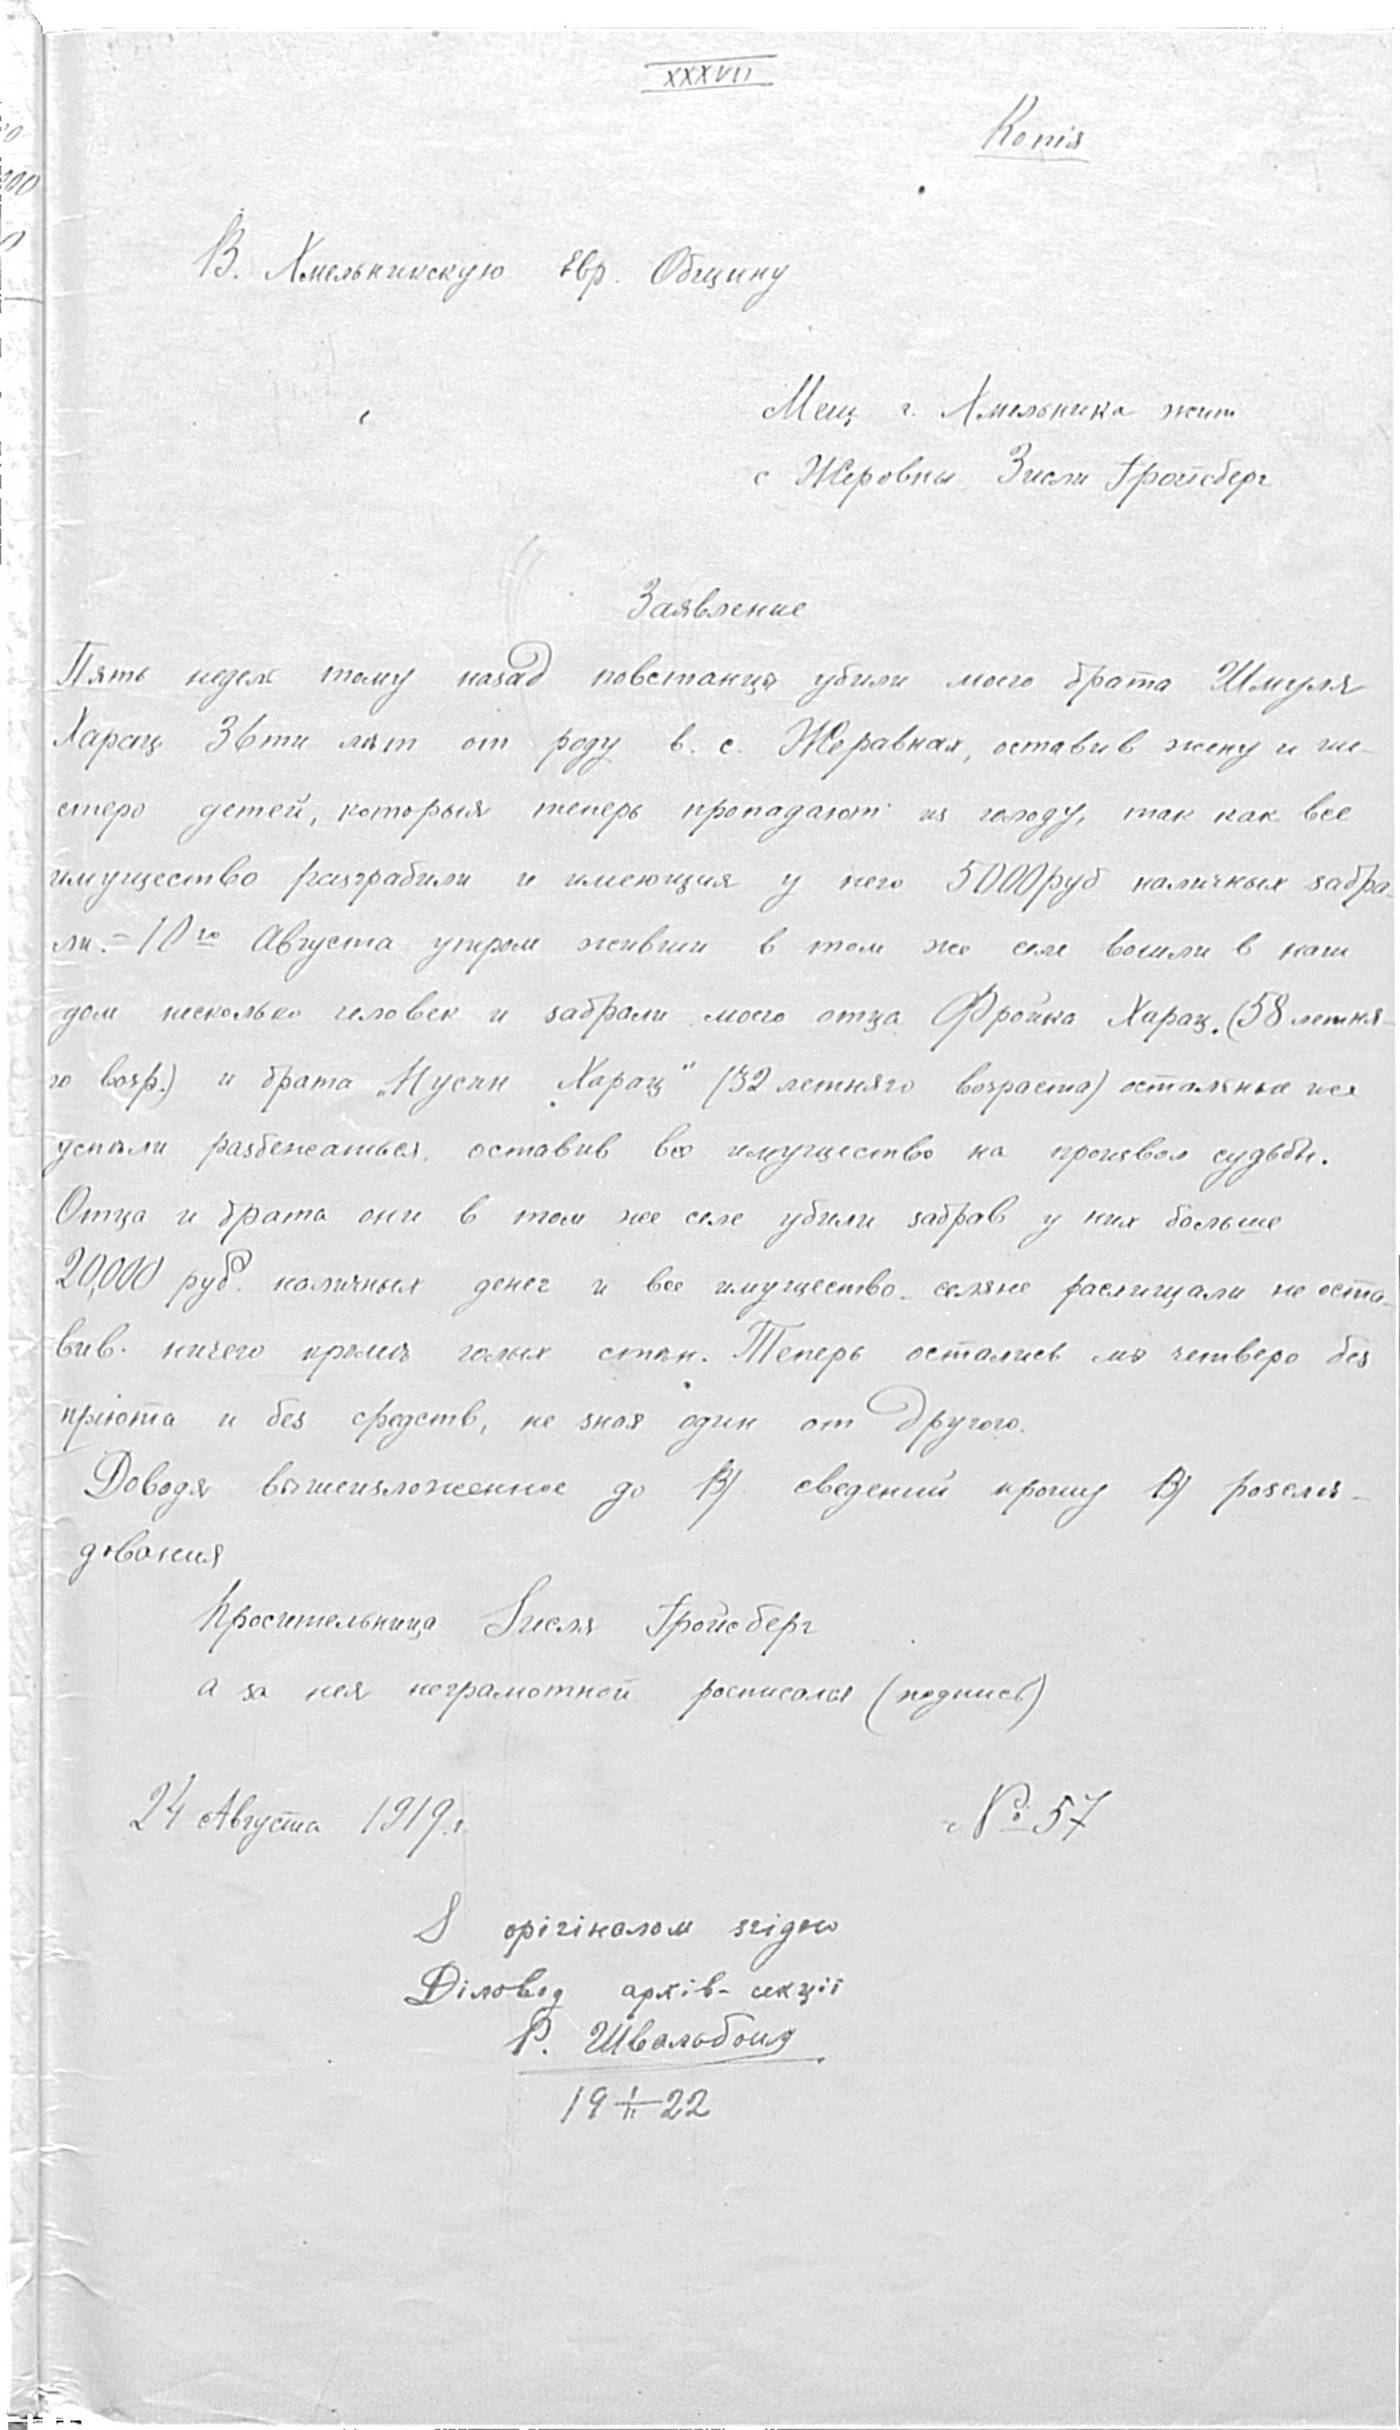 XXXVII
Копія
В. Хмельникскую Евр. Общину
Мещ г. Хмельника жит
с Жеровны Зисли Гройсберг
Заявление
Пять недель тому назад повстанцы убили моего брата Шмуля
Харац 36ти лет от роду в. с. Жеравная, оставив жену и ше-
стеро детей, которыя теперь пропадают из голоду, так как все
имущество разграбили и имеющия у него 5000 руб наличных забра-
ли. – 10го Августа утром живши в том же селе вошли в наш
дом несколько человек и забрали моего отца Фройка Харац. (58 летня-
го возр.) и брата „Нусин Харац" (32 летняго возраста) остальные все
успели разбежаться, оставив все имущество на произвол судьбы.
Отца и брата они в том же селе убили забрав у них больше
20,000 руб. наличных денег и все имущество селяне расхищали не оста-
вив. ничего кроме голых стен. Теперь остались мы четверо без
пріюта и без средств, не зная один от другого.
Доводя вышеизложенное до В/ сведений прошу В/ розсли-
дования
Просительница Зисля Гройсберг
а за нея неграмотной росписался (подпись)
24 Августа 1919 г.
№ 57
S орігіналом згідно
Діловод архів-секції
Р. Швальбонд
19 1/II 22